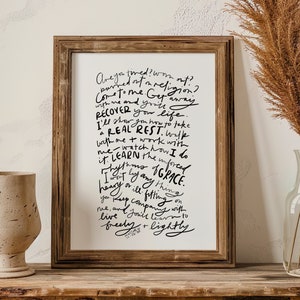 Are you tired? Worn out?
burned out on religion?
Come to me. Get away
with me and you'll
RECOVER your life.
I'll show you how to take
a REAL REST. Walk
with me + work with
me - watch how I do
it. LEARN the unforced
rhythms of GRACE.
I won't lay anything
heavy or ill fitting on
you. Keep company with
me and you'll learn to
live
freely + lightly